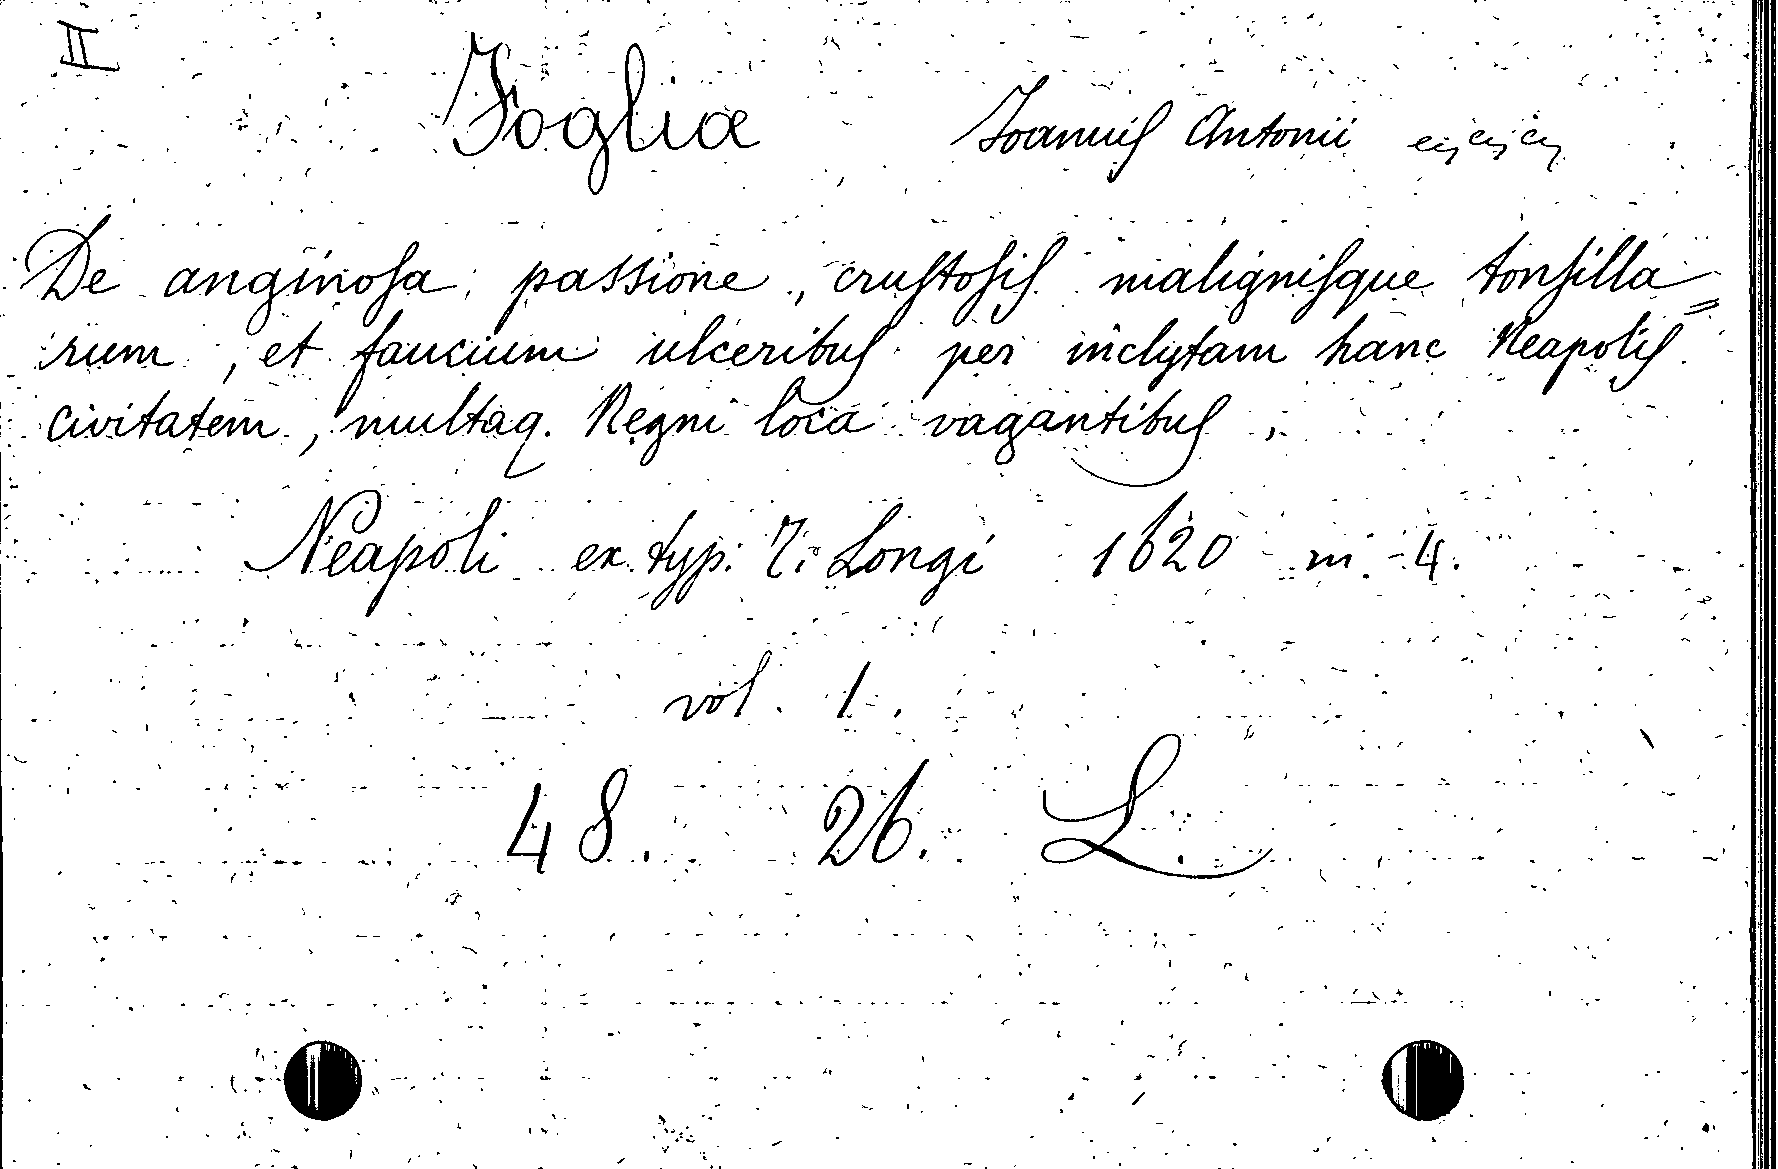 II
Foglia Joannis Antonii
De anginosa passione, crustosis malignisque tonsilla=
rum, et faucium ulceribus per inclytam hanc Neapolis
civitatem, multaq. Regni loca vagantibus,
Neapoli ex typ. Longi 1620 in 4.
vol. 1.
48. 26. L.